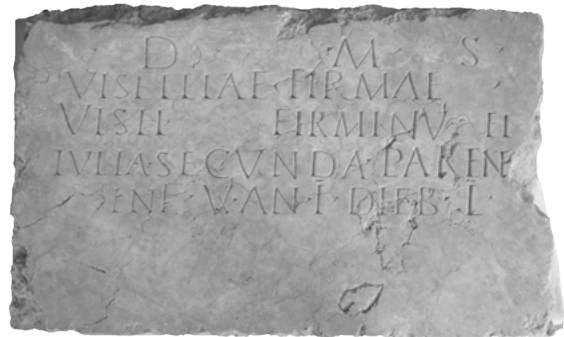 D · M · S
VISELLIAE · FIRMAE
VISELL FIRMINV ET
IVLIA · SECVNDA · PAREN
BENE · V · AN · I · DIEB · L ·